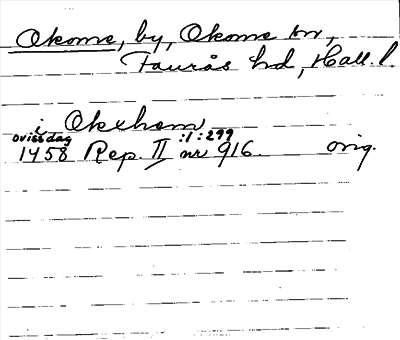 Okome, by, Okome sn,
Faurås hd, Hall. l.
i Okehom
ovissdag :1:299
1458 Rep. II nr 916. orig.